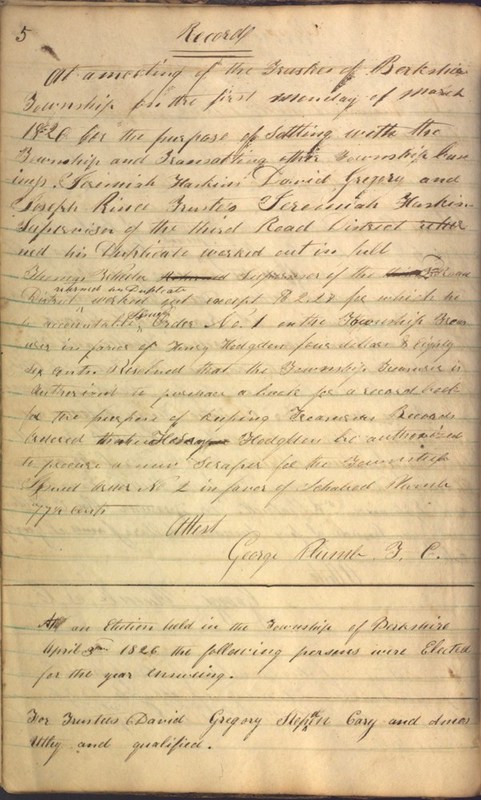 5 Records
At a meeting of the Trustees of Berkshire
Township on the first monday of march
1826 for the purpose of Settling with the
Township and Transacting other Township
Jeremiah Haskins David Gregory and
Joseph Prince Trustees Jeremiah Haskins
Supervisor of the third Road District
his Duplicate worked out in full
Thomas Supervisor of the Road
returned his Duplicate
District worked out except $ 2.28 for which he
is accountable Issued Order No. 1 on the Township
in favor of Henry Hodgden four dollars & eighty
six cents Resolved that the Township Treasurer is
Authorised to purchase a book for a record book
for the purpose of keeping Treasurers Records
Ordered that Hodgden be authorised
to procure a new Scraper for the Township
Issued order No 2 in favor of Plumb
77½ cents
Attest
George Plumb T. C.
At an Election held in the Township of Berkshire
April 3rd 1826 the following persons were Elected
for the year ensueing.
For Trustees David Gregory Cary and Amos
Utley and qualified.